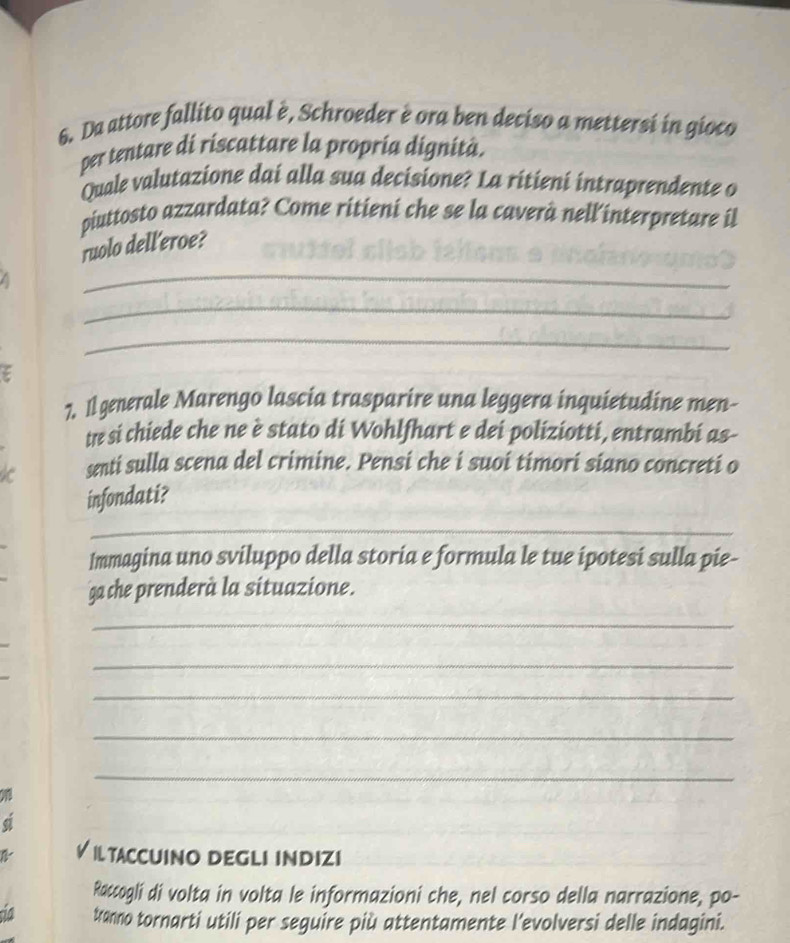 6. Da attore fallito qual è, Schroeder è ora ben deciso a mettersi in gioco
per tentare di riscattare la propria dignità.
Quale valutazione dai alla sua decisione? La ritieni intraprendente o
piuttosto azzardata? Come ritieni che se la caverà nell'interpretare il
ruolo dell'eroe?
7. Il generale Marengo lascia trasparire una leggera inquietudine men-
tre si chiede che ne è stato di Wohlfhart e dei poliziotti, entrambi as-
senti sulla scena del crimine. Pensi che i suoi timori siano concreti o
infondati?
Immagina uno sviluppo della storia e formula le tue ipotesi sulla pie-
ga che prenderà la situazione.
on
si
n-
√ IL TACCUINO DEGLI INDIZI
Raccogli di volta in volta le informazioni che, nel corso della narrazione, po-
sia
tranno tornarti utili per seguire più attentamente l'evolversi delle indagini.